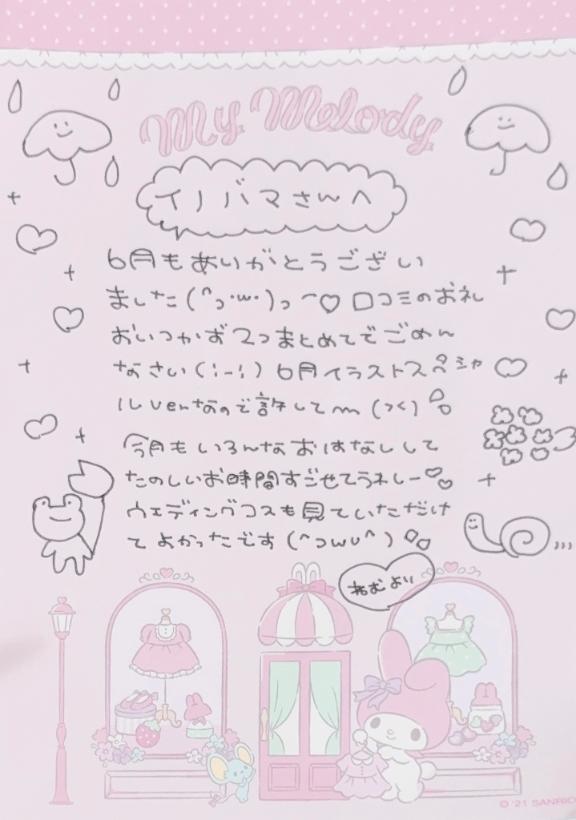 My Melody
イノバマさんへ
6月もありがとうござい
ました(^っ·ω·)っ〜♡ 口コミのお礼
おいつかず2つまとめてでごめん
なさい(;-;) 6月イラストスペシャ
ルverなので許してm(つ<)
今月もいろんなおはなしして
たのしいお時間すごせてうれしー♡♡
ウェディングコスも見ていただけ
てよかったです(^つωU^)♡♡
ねむより
© '21 SANRIO